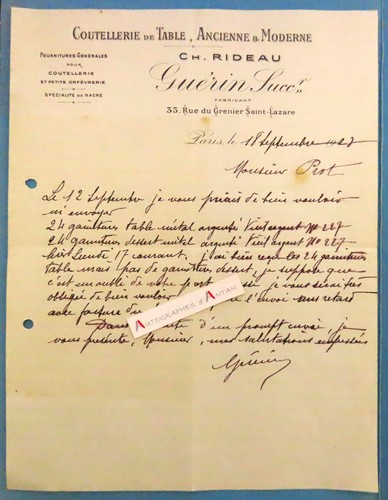 COUTELLERIE DE TABLE, ANCIENNE & MODERNE
CH. RIDEAU
Guérin Succr
FABRICANT
33, Rue du Grenier Saint-Lazare
FOURNITURES GÉNÉRALES
POUR
COUTELLERIE
ET PETITE ORFÈVRERIE
SPÉCIALITÉ DE NACRE
Paris, le 18 Septembre 1927
Monsieur Prot
Le 12 Septembre je vous priais de bien vouloir
m'envoyer
24 garnitures table métal argenté Vieil argent No 227
24 garnitures dessert métal argenté Vieil argent No 227
hier Lundi 17 courant, j'ai bien reçu les 24 garnitures
table mais pas de garnitures dessert, je suppose que
c'est un oubli de votre part je vous serais très
obligée de bien vouloir l'envoi sans retard
avec facture
Dans d'un prompt envoi, je
vous présente, Monsieur, mes salutations empressées
Guérin
AUTOGRAPHES D'ANTAN